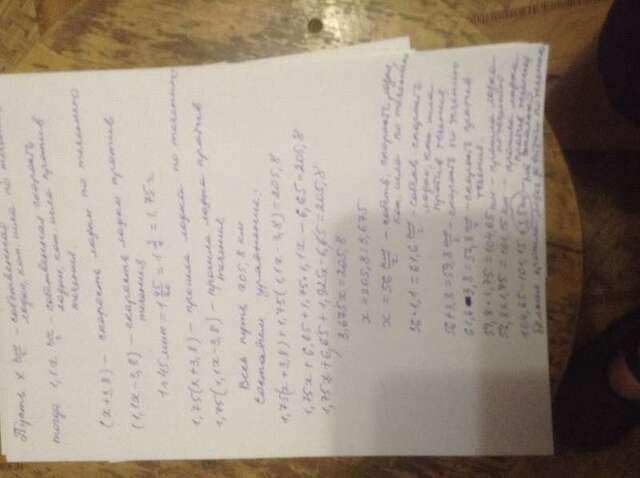 Пусть x км/ч – собственная
лодки, кот. шла по течению
тогда 1,1x км/ч – собственная скорость
лодки, кот. шла против
течения
(x+3,8) – скорость лодки по течению
(1,1x-3,8) – скорость лодки против
течения
1ч 45 мин = 1 45/60 = 1 3/4 = 1,75ч
1,75(x+3,8) – прошла лодка по течению
1,75(1,1x-3,8) – прошла лодка против
течения
Весь путь 205,8 км
Составим уравнение:
1,75(x+3,8)+1,75(1,1x-3,8)=205,8
1,75x+6,65+1,75·1,1x-6,65=205,8
1,75x+6,65+1,925x-6,65=205,8
3,675x=205,8
x=205,8:3,675
x=56 км/ч – собств. скорость лодки,
кот. шла по течению
56·1,1=61,6 км/ч – собств. скорость
лодки, кот. шла
против течения
56+3,8=59,8 км/ч – скорость по течению
61,6-3,8=57,8 км/ч – скорость против
течения
59,8·1,75=104,65 км – прошла лодка
по течению
57,8·1,75=101,15 км – прошла лодка
против течения
104,65-101,15=3,5 км
больше прошла лодка по течению